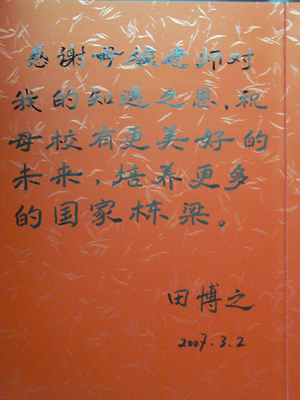 感谢母校老师对
我的知遇之恩，祝
母校有更美好的
未来，培养更多
的国家栋梁。
田博之
2007.3.2